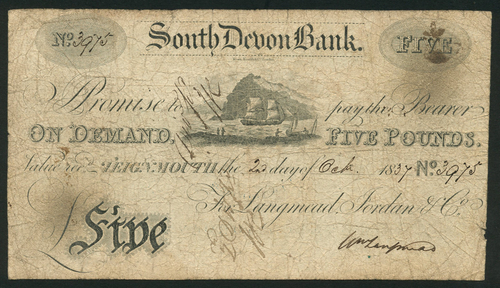 No. 3975
South Devon Bank.
FIVE
Promise to pay the Bearer
ON DEMAND, FIVE POUNDS.
Value recd. TEIGNMOUTH the 2 day of Oct. 1837 No. 3975
For Langmead, Jordan & Co.
£ Five
Wm Langmead